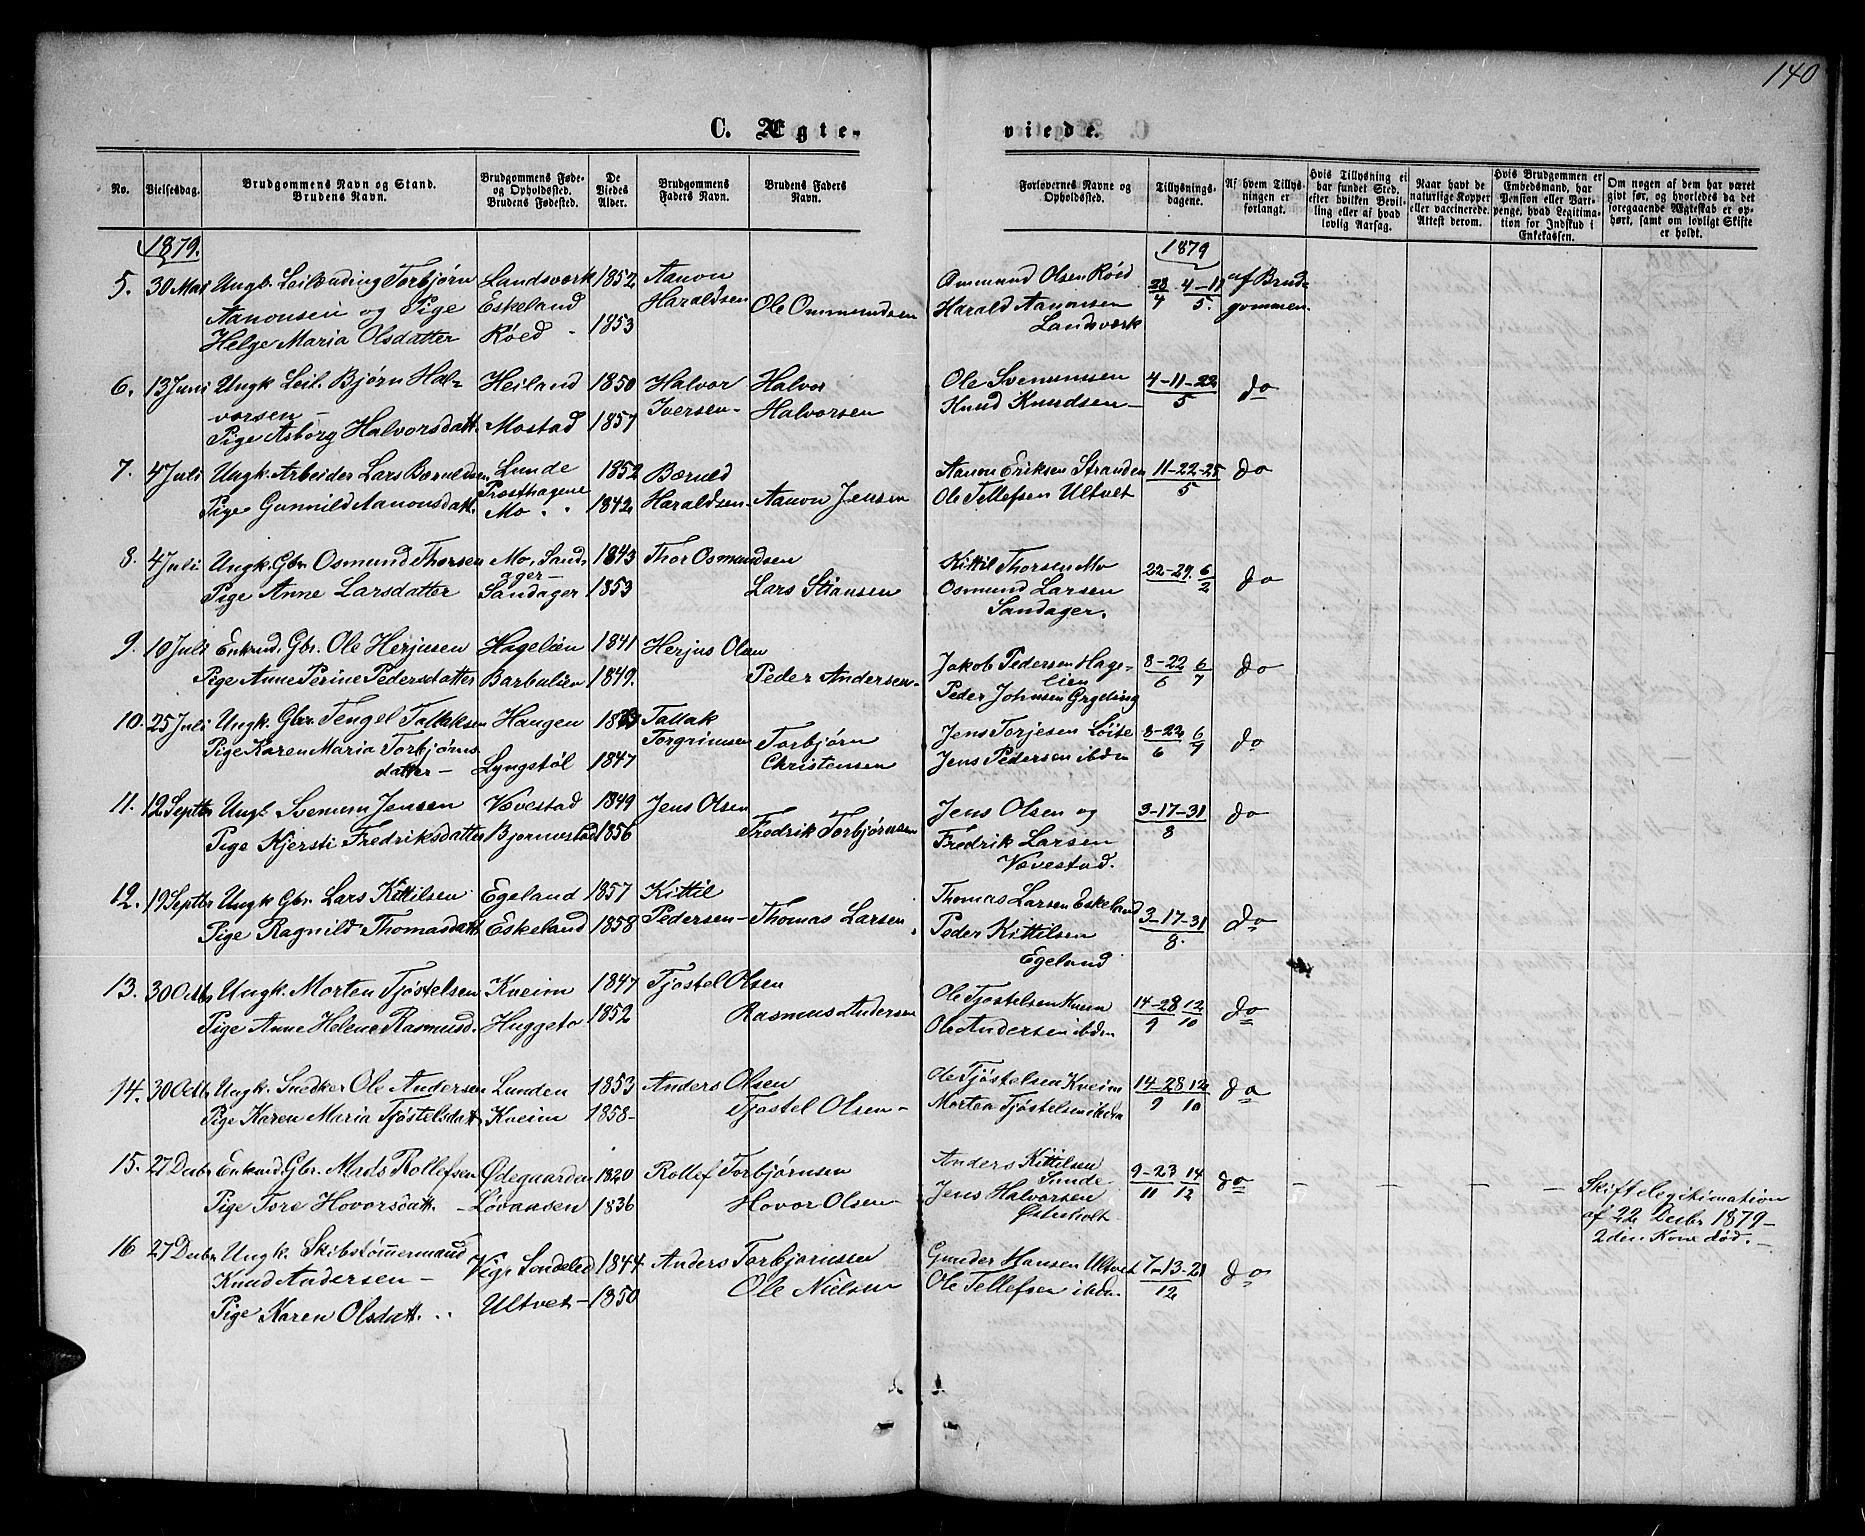 140
C. Ægte-
viede.
No.
Vielsesdag.
Brudgommens Navn og Stand.
Brudens Navn.
Brudgommens Føde-
og Opholdssted.
Brudens Fødested.
De
Viedes
Alder.
Brudgommens
Faders Navn.
Brudens Faders
Navn.
Forlovernes Navne og
Opholdssted.
Tillysnings-
dagene.
Af hvem Tillys-
ningen er
forlangt.
Hvis Tillysning ei
har fundet Sted,
efter hvilken Bevil-
ling eller af hvad
lovlig Aarsag.
Naar havt de
naturlige Kopper
eller vaccinerede.
Attest derom.
Hvis Brudgommen er
Embedsmand, har
Pension eller Vart-
penge, hvad Legitima-
tion for Indskud i
Enkekassen.
Om nogen af dem har været
gift før, og hvorledes da det
foregaaende Ægteskab er op-
hørt, samt om lovligt Skifte
er holdt.
1879.
1879
5. 30 Mai Ungk. Leilænding Torbjørn Landsværk 1852 Aanon
Aanonsen og Pige Eskeland Haraldsen Ole Ommundsen
Helge Maria Olsdatter Røed - 1853
Ommund Olsen Røed 28/4 4-11/5. af Brud-
Harald Aanonsen gommen.
Landsværk
6. 13 Juni Ungk Leil. Bjørn Hal- Heiland 1850 Halvor Halvor
vorsen - Iversen - Halvorsen
Pige Asborg Halvorsdatt. Mostad 1857
Ole Svenumsen 4-11-22/5 do
Knud Knudsen -
7. 4 Juli Ungk. Arbeider Lars Bæruldsen Lunde 1852 Bæruld
Præsthagene
Pige Gunnild Aanonsdatt. Mo 1842 Haraldsen - Aanon Jensen
Aanon Eriksen Stranden 11-22-25/5 do
Ole Tellefsen Ultvet
8. 4 Juli Ungk. Gbr. Osmund Thorsen Mo, Sand- 1843 Thor Osmundsen
ager -
Pige Anne Larsdatter Sandager 1853 Lars Stiansen
Kittil Thorsen Mo 22-29. 6/2 do
Osmund Larsen
Sandager.
9. 10 Juli Enkmd. Gbr. Ole Herjusen Hagelien 1841 Herjus Olsen
Pige Anne Perine Pedersdatter Barbulien 1849. Peder Andersen -
Jakob Pedersen Hage- 8-22/6 6/7 do
lien
Peder Johnsen Grgeling
10. 25 Juli Ungk. Gbr. Tengel Tallaksen Haugen Tallak
Pige Karen Maria Torbjørns- Torgrimsen Torbjørn
datter - Lyngstøl 1847 Christensen
Jens Torjesen Løite 8-22/6 6/7 do
Jens Pedersen ibdm
11. 12 Septbr Ungk. Svenum Jensen Vævestad 1849 Jens Olsen
Pige Kjersti Fredriksdatter Bjørnvestad 1856 Fredrik Torbjørnsen
Jens Olsen og 3-17-31/8 do
Fredrik Larsen
Vævestad.
12. 19 Septbr Ungk Gbr. Lars Kittilsen Egeland 1857 Kittil
Pige Ragnild Thomasdatt Eskeland 1858 Pedersen - Thomas Larsen
Thomas Larsen Eskeland 3-17-31/8. do
Peder Kittilsen
Egeland
13. 30 Octb. Ungk. Morten Tjøstelsen Kveim 1847 Tjøstel Olsen
Pige Anne Helene Rasmusd. Huggeto 1852 Rasmus Andersen
Ole Tjøstelsen Kveim 14-28/9 12/10 do
Ole Andersen ibdm
14. 30 Octb. Ungk. Snedker Ole Andersen Lunden 1853 Anders Olsen
Pige Karen Maria Tjøstelsdatt. Kveim 1858 - Tjøstel Olsen -
Ole Tjøstelsen Kveim 14-28/9 12/10 do
Morten Tjøstelsen ibdm
15. 27 Decbr Enkmd. Gbr. Mads Rollefsen Ødegaarden 1820 Rollef Torbjørnsen
Pige Tore Hovorsdatt. - Løvaasen 1836 Hovor Olsen -
Anders Kittilsen 9-23/11 14/12 do - - - -
Sunde
Jens Halvorsen
Østerholt -
Skiftelegitimation
af 22 Decbr 1879 -
2den Kone død. -
16 27 Decbr Ungk. Skibstømmermand Vig, Søndeled 1844 Anders Torbjørnsen
Knud Andersen - Ole Nielsen
Pige Karen Olsdatt. Ultvet - 1850
Gunder Hansen Ultvet 7-13-21/12 do
Ole Tellefsen ibdm.